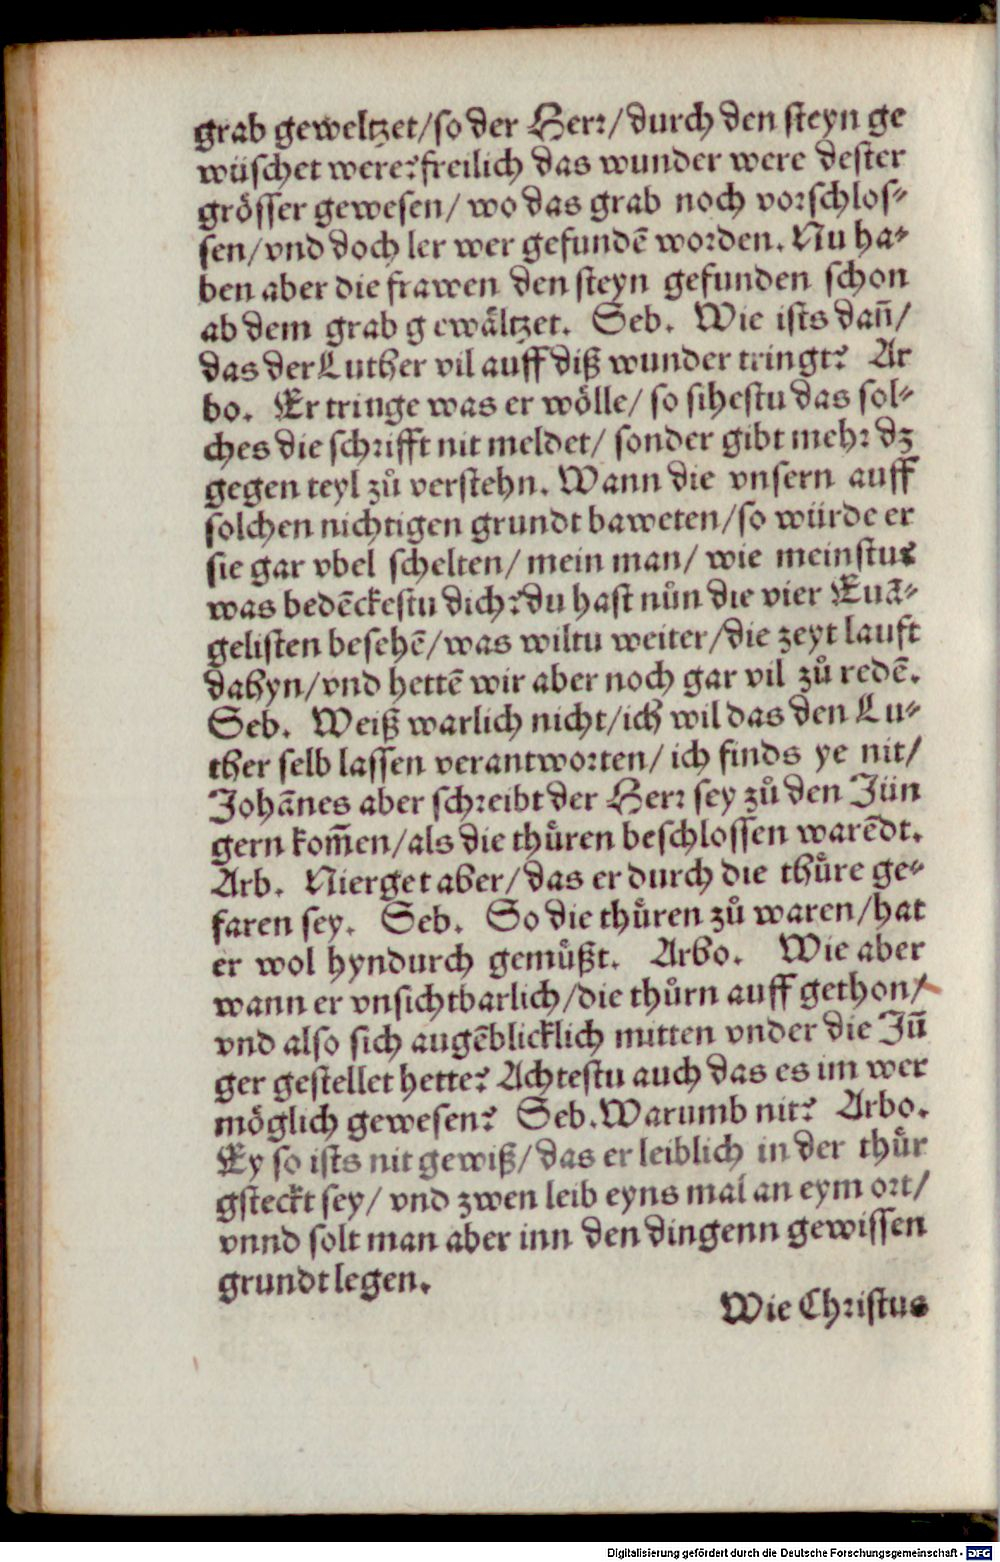 grab geweltzet/so der Herr/durch den steyn ge
wüschet were?freilich das wunder were dester
grösser gewesen/ wo das grab noch vorschlos⸗
sen/vnd doch ler wer gefundē worden. Nu ha⸗
ben aber die frawen den steyn gefunden schon
ab dem grab gewåltzet. Seb. Wie ists dañ/
das der Luther vil auff diß wunder tringt? Ar
bo. Er tringe was er wölle/ so sihestu das sol⸗
ches die schrifft nit meldet/ sonder gibt mehr dz
gegen teyl zů verstehn. Wann die vnsern auff
solchen nichtigen grundt baweten/so würde er
sie gar vbel schelten/ mein man/ wie meinstu?
was bedēckestu dich?du hast nůn die vier Euā⸗
gelisten besehē/was wiltu weiter/die zeyt lauft
dahyn/vnd hettē wir aber noch gar vil zů redē.
Seb. Weiß warlich nicht/ich wil das den Lu⸗
ther selb lassen verantworten/ ich finds ye nit/
Johānes aber schreibt der Herr sey zů den Jün
gern kom̄en/als die thüren beschlossen warēdt.
Arb. Nierget aber/das er durch die thüre ge⸗
faren sey. Seb. So die thüren zů waren/hat
er wol hyndurch gemüßt. Arbo. Wie aber
wann er vnsichtbarlich/die thůrn auff gethon/
vnd also sich augēblicklich mitten vnder die Jǖ
ger gestellet hette? Achtestu auch das es im wer
möglich gewesen? Seb.Warumb nit? Arbo.
Ey so ists nit gewiß/das er leiblich in der thür
gsteckt sey/ vnd zwen leib eyns mal an eym ort/
vnnd solt man aber inn den dingenn gewissen
grundt legen.
Wie Christus
Digitalisierung gefördert durch die Deutsche Forschungsgemeinschaft - DFG